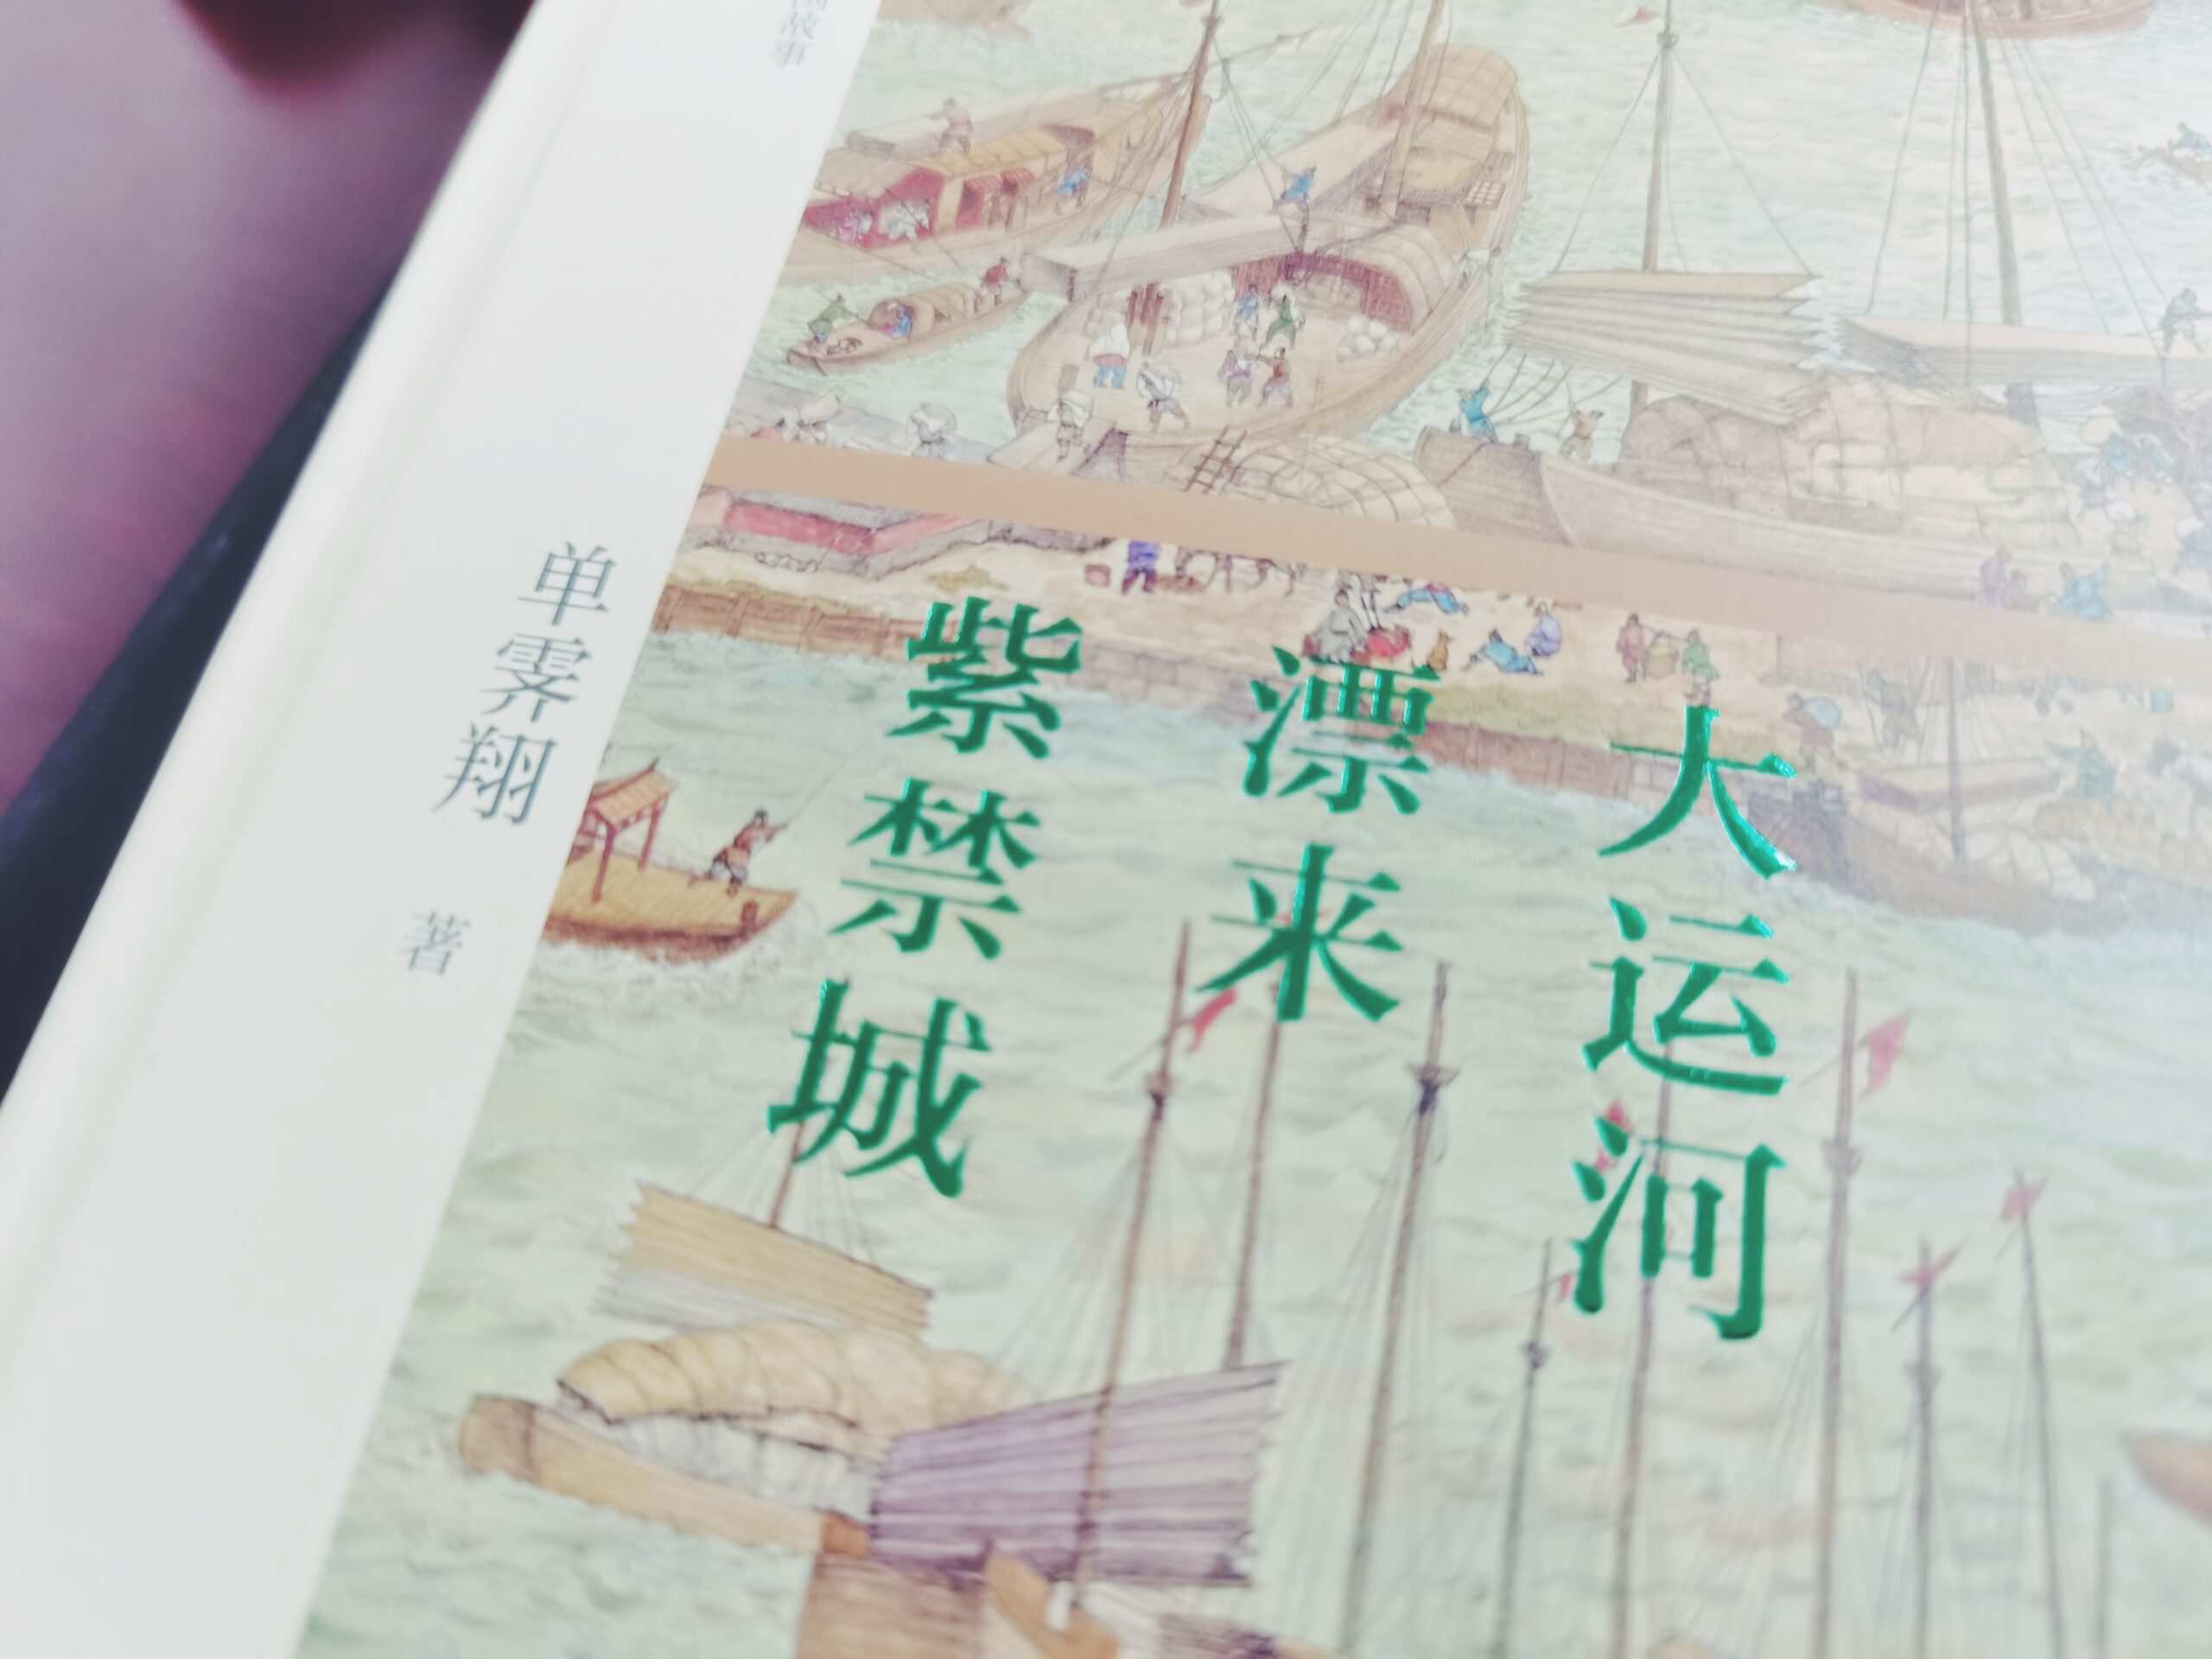 大运河
漂来
紫禁城
单霁翔 著
故事